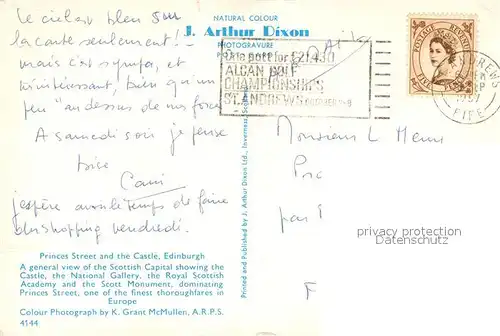 NATURAL COLOUR
J. Arthur Dixon
PHOTOGRAVURE
Le ciel bleu sur
la carte seulement! -
mais c'est sympa, et
intéressant, bien qu'un
peu "au dessus de nos forces
A samedi soir je pense
bise
j'espère avoir le temps de faire
du shopping vendredi.
Princes Street and the Castle, Edinburgh
A general view of the Scottish Capital showing the
Castle, the National Gallery, the Royal Scottish
Academy and the Scott Monument, dominating
Princes Street, one of the finest thoroughfares in
Europe
Colour Photograph by K. Grant McMullen, A.R.P.S.
4144
Printed and Published by J. Arthur Dixon Ltd., Inverness
One putt for £21,430
ALCAN GOLF
CHAMPIONSHIPS
ST. ANDREWS
POSTAGE REVENUE
FIFE
Monsieur L
par
F
privacy protection
watermark